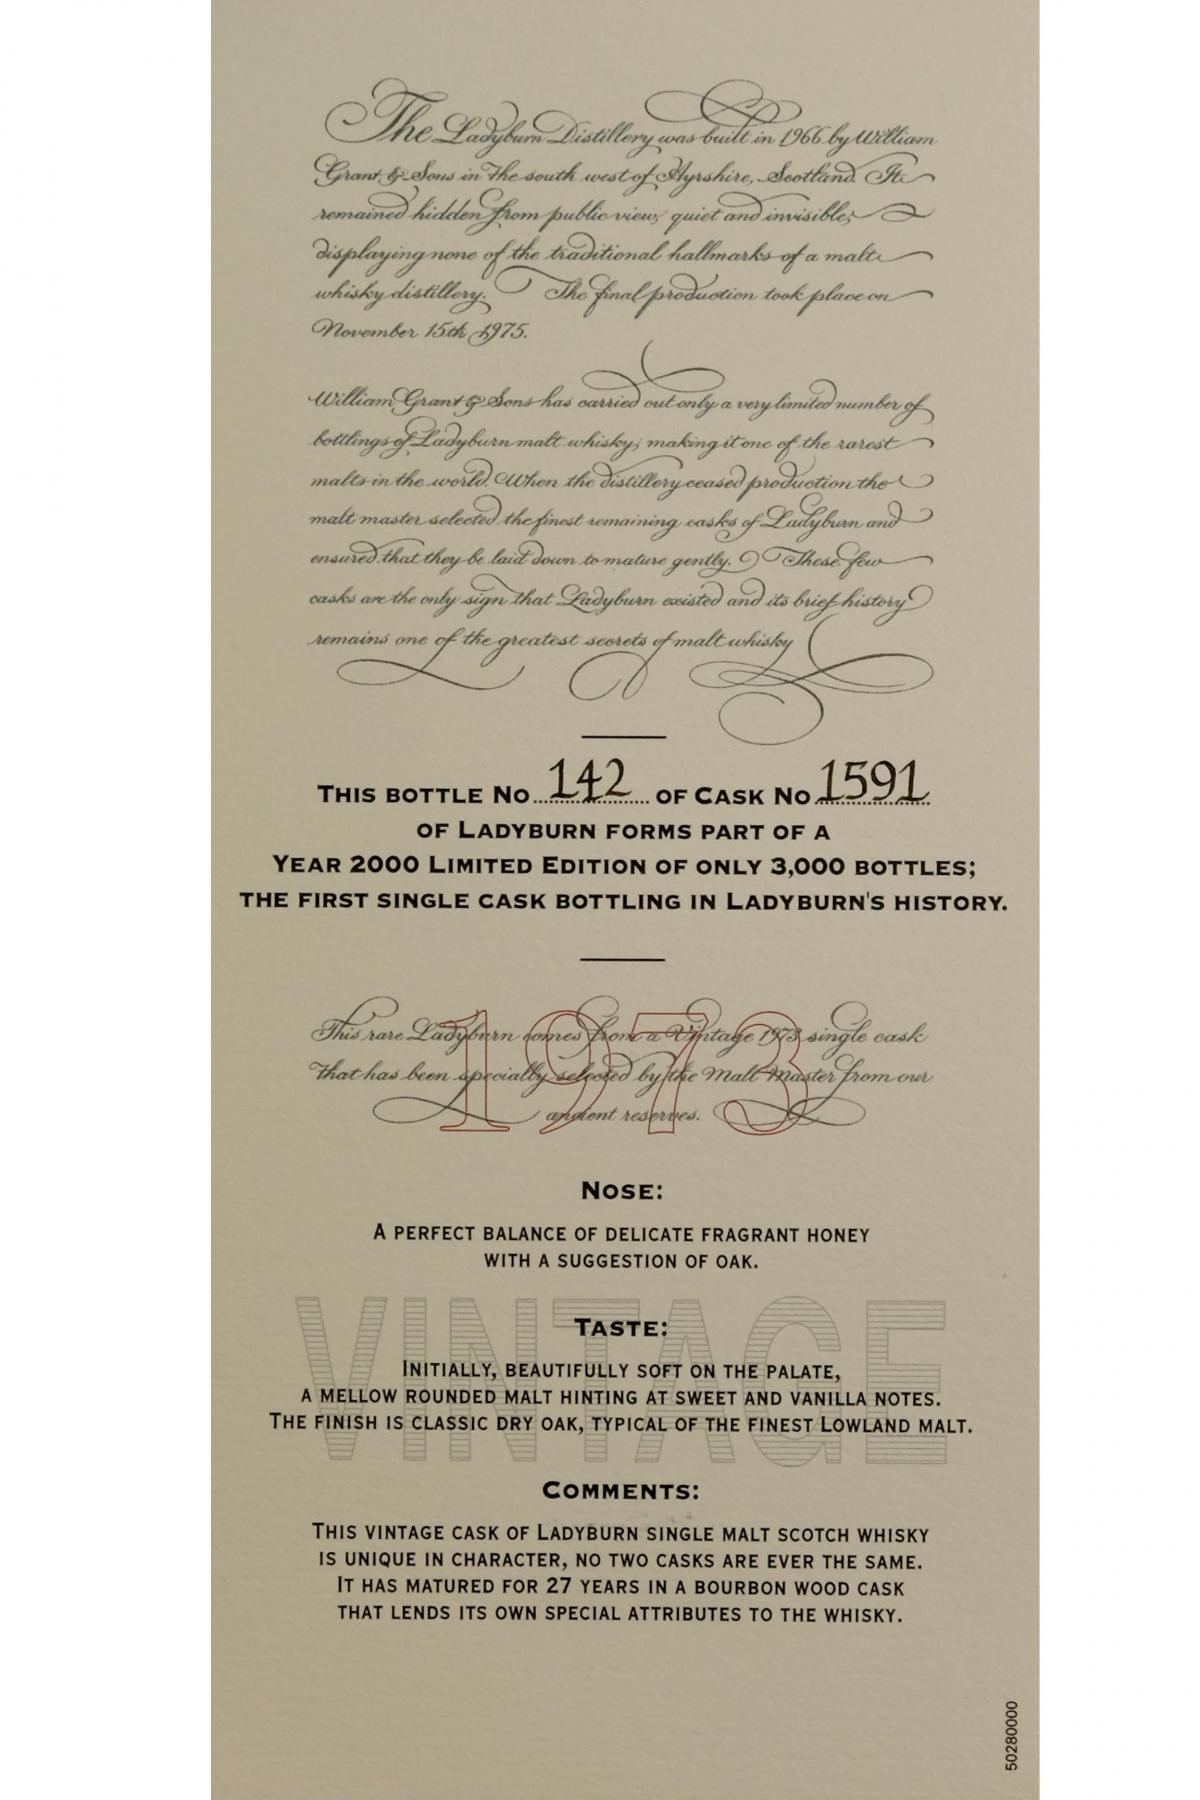 The Ladyburn Distillery was built in 1966 by William
Grant & Sons in the south west of Ayrshire, Scotland. It
remained hidden from public view, quiet and invisible;
displaying none of the traditional hallmarks of a malt
whisky distillery. The final production took place on
November 15th 1975.
William Grant & Sons has carried out only a very limited number of
bottlings of Ladyburn malt whisky; making it one of the rarest
malts in the world. When the distillery ceased production the
malt master selected the finest remaining casks of Ladyburn and
ensured that they be laid down to mature gently. These few
casks are the only sign that Ladyburn existed and its brief history
remains one of the greatest secrets of malt whisky
THIS BOTTLE NO 142 OF CASK NO 1591
OF LADYBURN FORMS PART OF A
YEAR 2000 LIMITED EDITION OF ONLY 3,000 BOTTLES;
THE FIRST SINGLE CASK BOTTLING IN LADYBURN'S HISTORY.
1973
This rare Ladyburn comes from a Vintage 1973 single cask
that has been specially selected by the Malt Master from our
ancient reserves.
NOSE:
A PERFECT BALANCE OF DELICATE FRAGRANT HONEY
WITH A SUGGESTION OF OAK.
VINTAGE
TASTE:
INITIALLY, BEAUTIFULLY SOFT ON THE PALATE,
A MELLOW ROUNDED MALT HINTING AT SWEET AND VANILLA NOTES.
THE FINISH IS CLASSIC DRY OAK, TYPICAL OF THE FINEST LOWLAND MALT.
COMMENTS:
THIS VINTAGE CASK OF LADYBURN SINGLE MALT SCOTCH WHISKY
IS UNIQUE IN CHARACTER, NO TWO CASKS ARE EVER THE SAME.
IT HAS MATURED FOR 27 YEARS IN A BOURBON WOOD CASK
THAT LENDS ITS OWN SPECIAL ATTRIBUTES TO THE WHISKY.
50280000